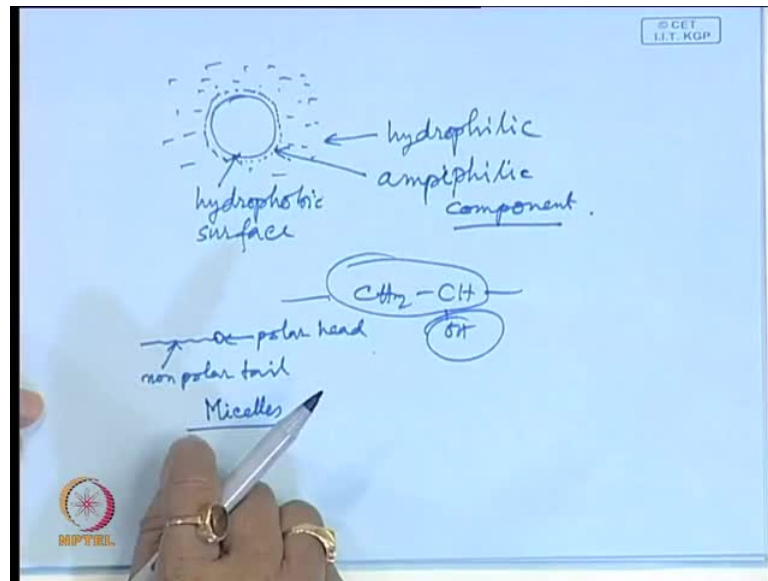 © CET
I.I.T. KGP
hydrophilic
ampiphilic
component.
hydrophobic
surface
CH2 - CH
OH
polar head
non polar tail
Micelles
NPTEL